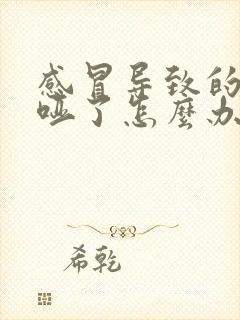 感冒导致的
哑了怎麼办
希乾